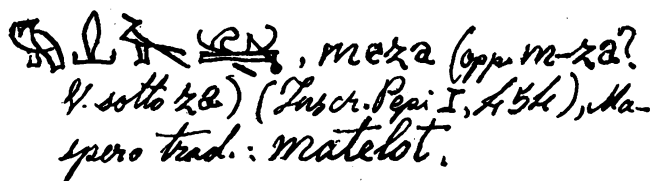 , meza (opp. m-za?
V. sotto za) (Inscr. Pepi I, 454), Ma-
spero trad.: matelot.